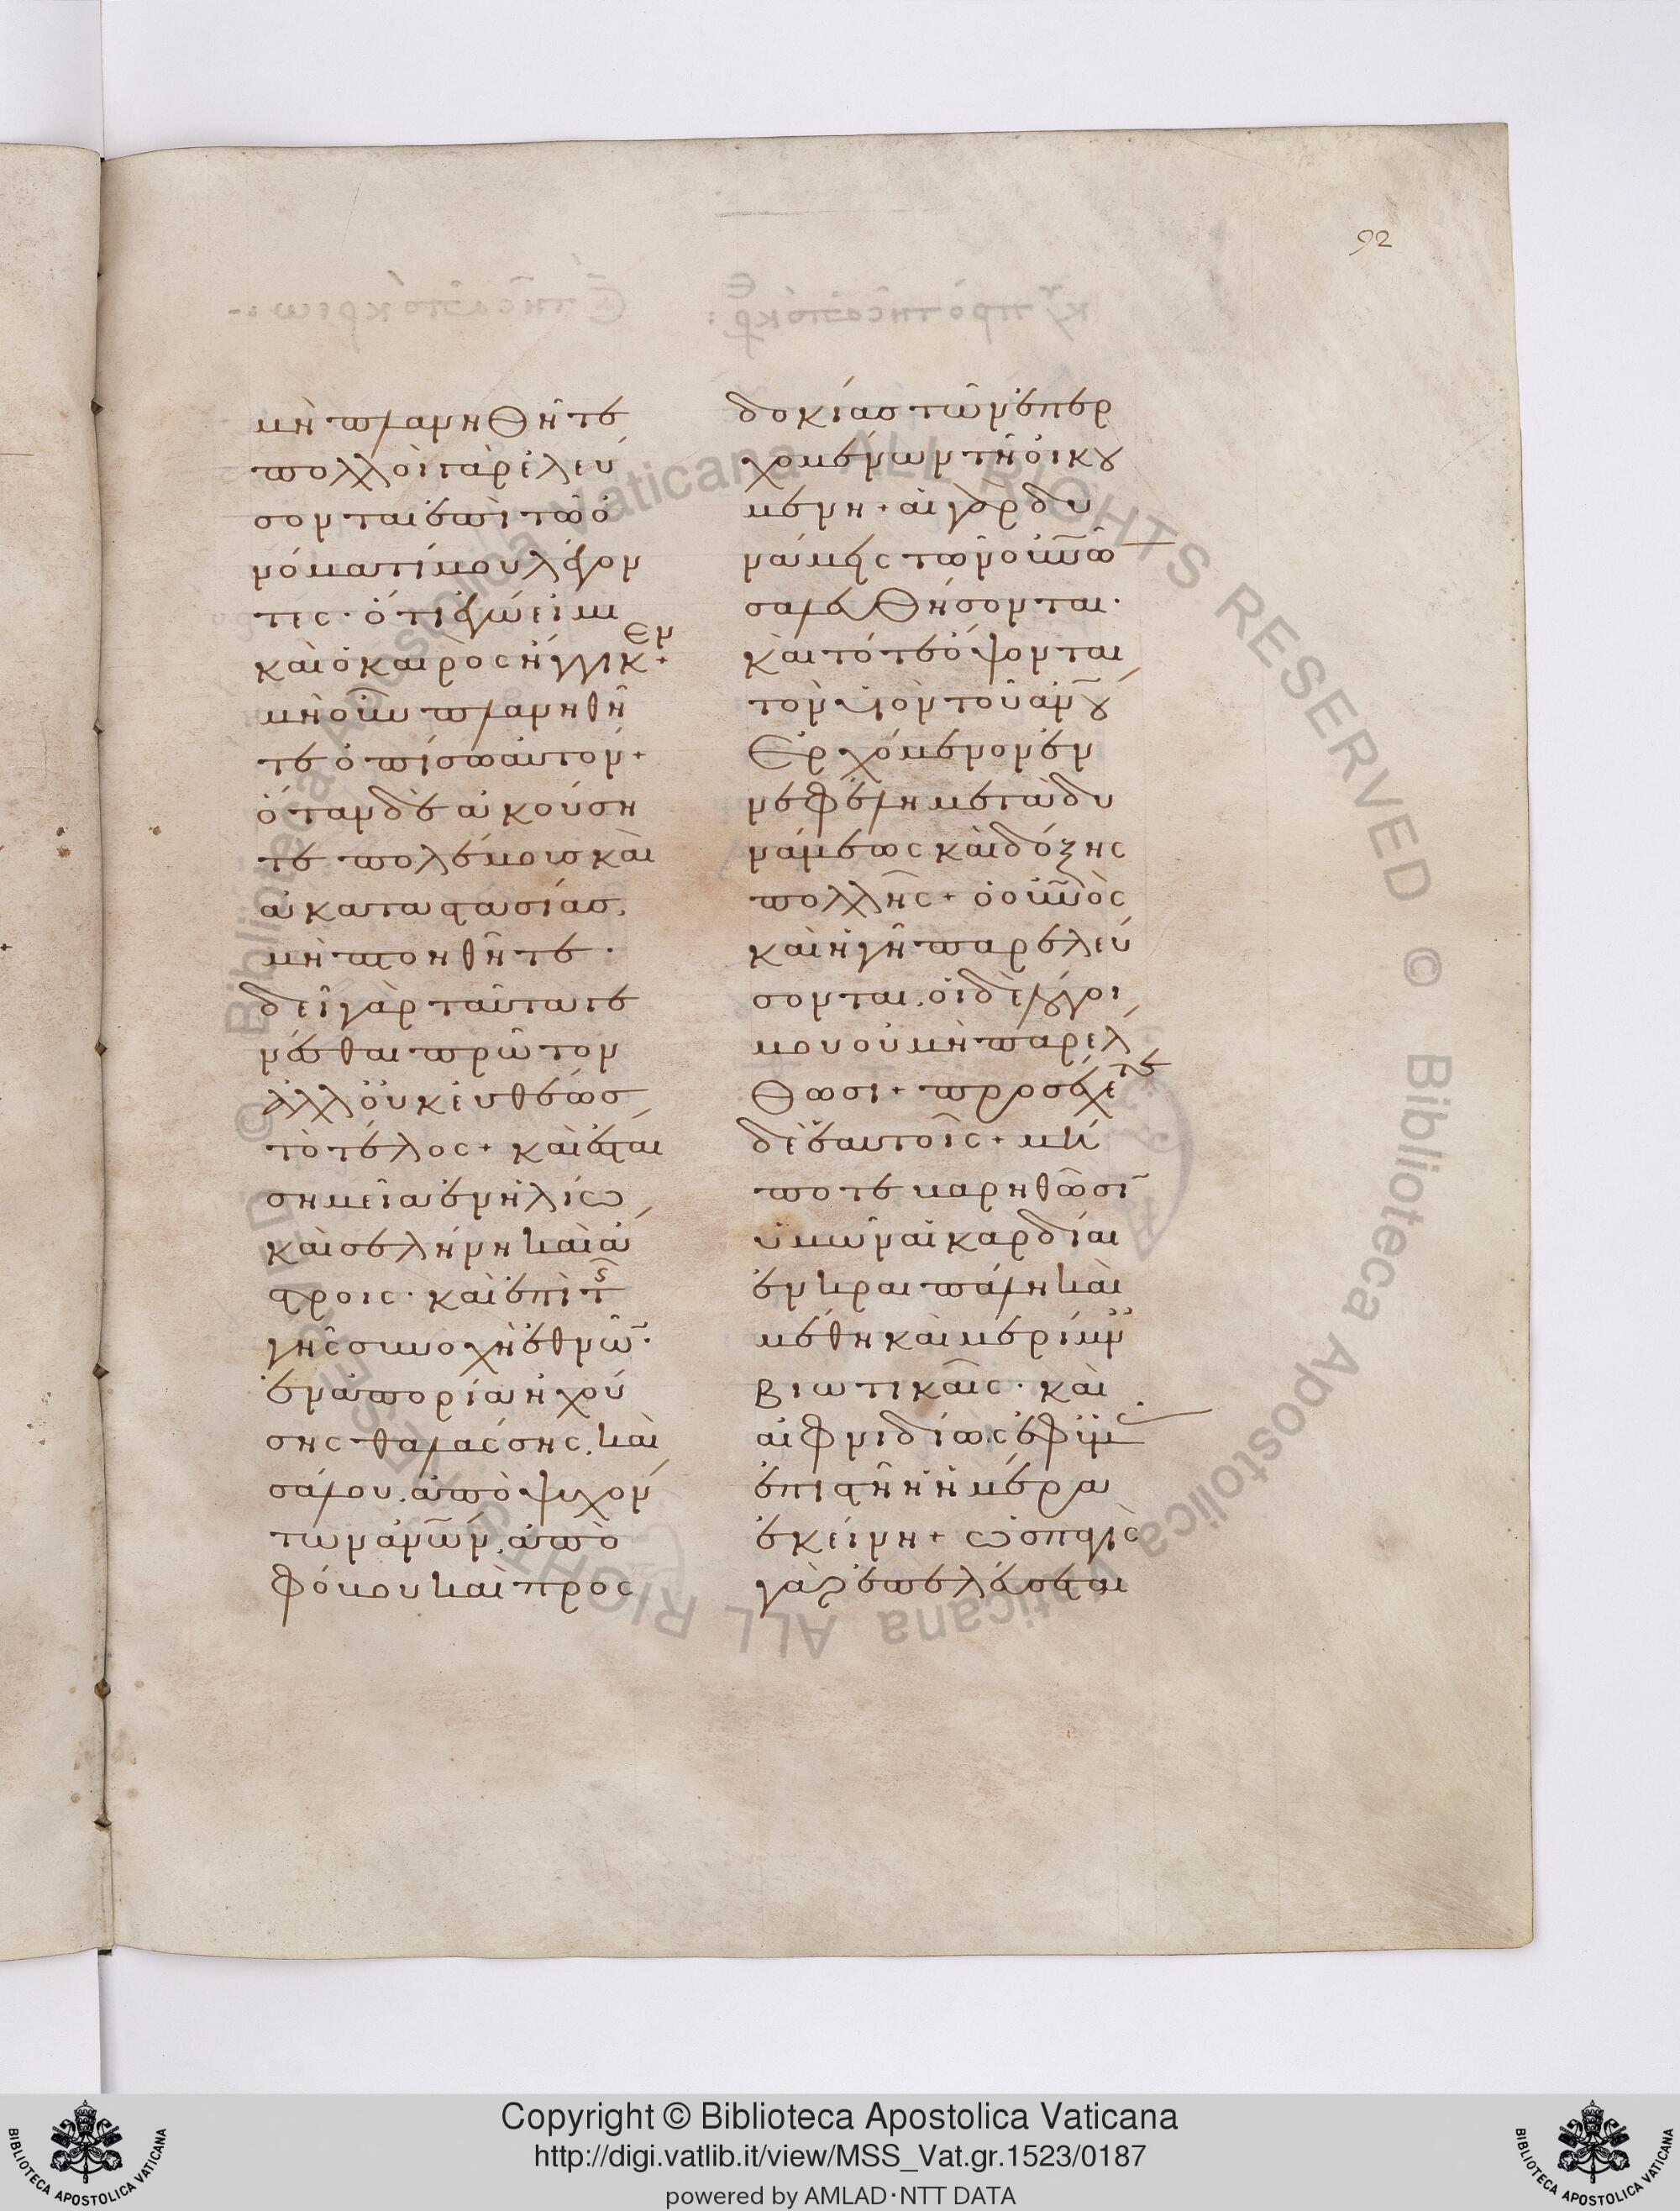 92
μὴ πλανηθῆτε
πολλοὶ γὰρ ἐλεύ
σονται ἐπὶ τῶ ὀ
νόματί μου λέγον
τες· ὅτι ἐγώ εἰμι
καὶ ὁ καιρὸς ἤγγικεν+
μὴ οὖν πλανηθῆ
τε ὀπίσω αυτον+
ὅταν δὲ ἀκούση
τε πολέμοισ καὶ
ἀκαταστασίασ,
μὴ πτοηθῆτε·
δεῖ γὰρ ταῦτα γε
νέσθαι πρῶτον
ἀλλ' οὐκ ἐυθέωσ
τὸ τέλος+ καὶ ἔσται
σημεῖα ἐν ἡλίω
καὶ σελήνη καὶ ἄ
στροις· καὶ ἐπὶ τ̑ς
γῆς συνοχὴ ἐθνῶ̄·
ἐν ἀπορία ἠχού
σης θαλάσσης, καὶ
σάλου. ἀποψυχόν
των ἀν̅ω̅ν, ἀπὸ
φόβου καὶ προς
δοκίασ τῶν ἐπερ
χομένων τῆ οἰκȣ
μένη+ αἱ γὰρ δυ
νάμεις τῶν οὐν̅ω̅
σαλευθήσονται·
καὶ τότε ὄψονται
τὸν υἱὸν τοῦ ἀν̅ȣ
Ἐρχόμενον ἐν
νεφέλη μετὰ δυ
νάμεως καὶ δόξης
πολλῆς+ ὁ οὐν̅ὸς
καὶ ἡ γῆ παρελεύ
σονται. οἱ δὲ λόγοι
μου οὐ μὴ παρέλ
θωσι+ προσέχετε
δὲ ἑαυτοῖς+ μή
ποτε βαρηθῶσῑ
ὑμῶν αἱ καρδίαι
ἐν κραιπάλη καὶ
μέθη καὶ μερίμν̈
βιωτικαῖς· καὶ
αἰφνιδίως ἐφ' ὑμ
ἐπιστῆ ἡ ἡμέρα
ἐκείνη+ ὡσ παγὶς
γὰρ ἐπελεύσεται
Copyright © Biblioteca Apostolica Vaticana
http://digi.vatlib.it/view/MSS_Vat.gr.1523/0187
powered by AMLAD·NTT DATA
BIBLIOTECA APOSTOLICA VATICANA
BIBLIOTECA APOSTOLICA VATICANA